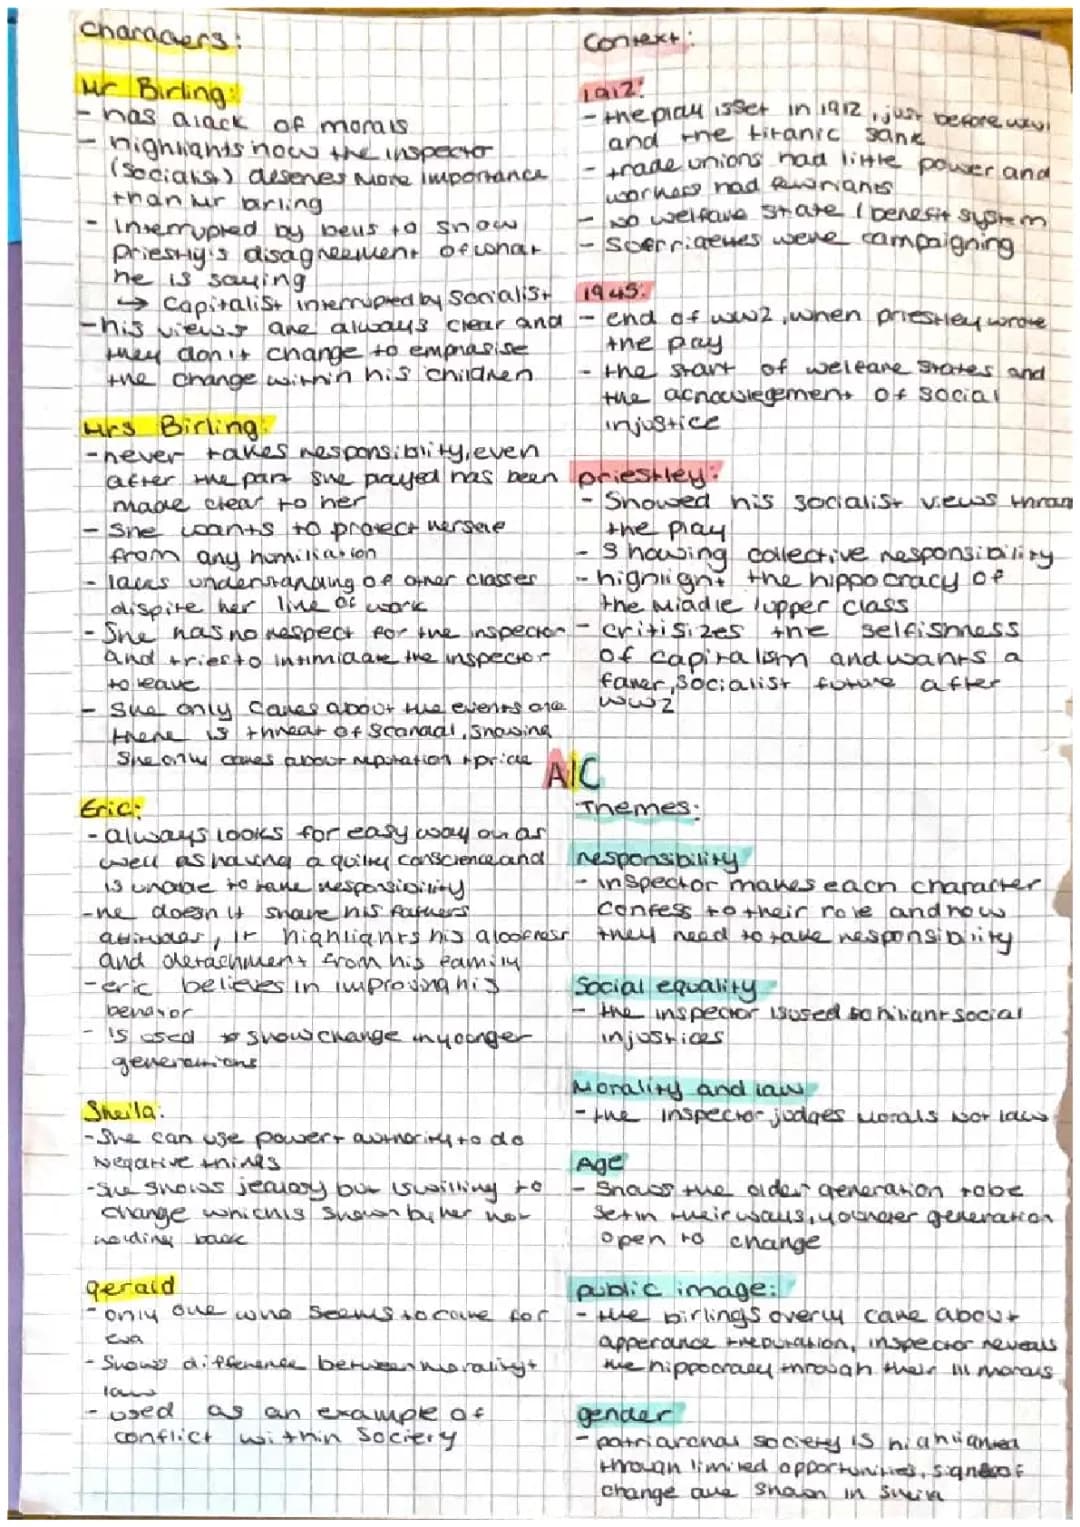 characters:
Mr Birling:
- has a lack of morals
- highlights how the inspector
(socialist) deserves more importance
than Mr birling
- Interrupted by bells to show
Priestly's disagreement of what
he is saying
→ Capitalist interrupted by Socialist
- his views are always clear and
they don't change to emphasise
the change within his children
Mrs Birling:
- never takes responsiblity, even
after the part she played has been
made clear to her
- She wants to protect herself
from any humiliation
- lacks understanding of other classes
dispite her line of work
- She has no respect for the inspector
and tries to intimidate the inspector
to leave
- She only cares about the events once
there is threat of scandal, showing
She only cares about reputation + pride
Eric:
- always looks for easy way out as
well as having a guilty conscience and
is unable to take responsibility
- he doesn't share his fathers
attitudes, it highlights his aloofness
and detachment from his family
- eric believes in improving his
behavior
- is used to show change in younger
generations
Sheila:
- She can use power + authority to do
negative things
- She shows jealousy but is willing to
change which is shown by her not
holding back
gerald
- only one who seems to care for
eva
- Shows difference between morality +
law
- used as an example of
conflict within Society
Context:
1912:
- the play is set in 1912, just before ww1
and the titanic sank
- trade unions had little power and
workers had few rights
- no welfare state / benefit system
- Sufferigettes were campaigning
1945:
- end of ww2, when priestley wrote
the play
- the start of welfare states and
the acnowlegement of social
injustice
priestley:
- Showed his socialist views through
the play
- Showing collective responsibility
- highlight the hippocracy of
the Middle / upper class
- critisizes the selfishness
of capitalism and wants a
fairer, socialist future after
ww2
AIC
Themes:
responsibility
- inspector makes each character
confess to their role and how
they need to take responsibility
Social equality
- the inspector is used to hiliant social
injustices
Morality and law
- the inspector judges morals not laws
Age
- Shows the older generation to be
set in their ways, younger generation
open to change
public image:
- the birlings overly care about
apperance + reputation, inspector reveals
the hippocracy through their ill morals
gender
- patriarchal society is highlighted
through limited opportunities, signs of
change are shown in Sheila